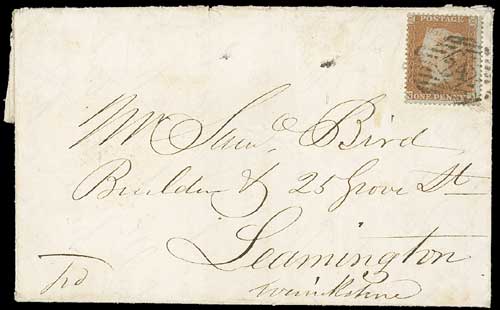 POSTAGE
ONE PENNY
Mr Saml Bird
Builder & 25 Grove St
Leamington
Warwickshire